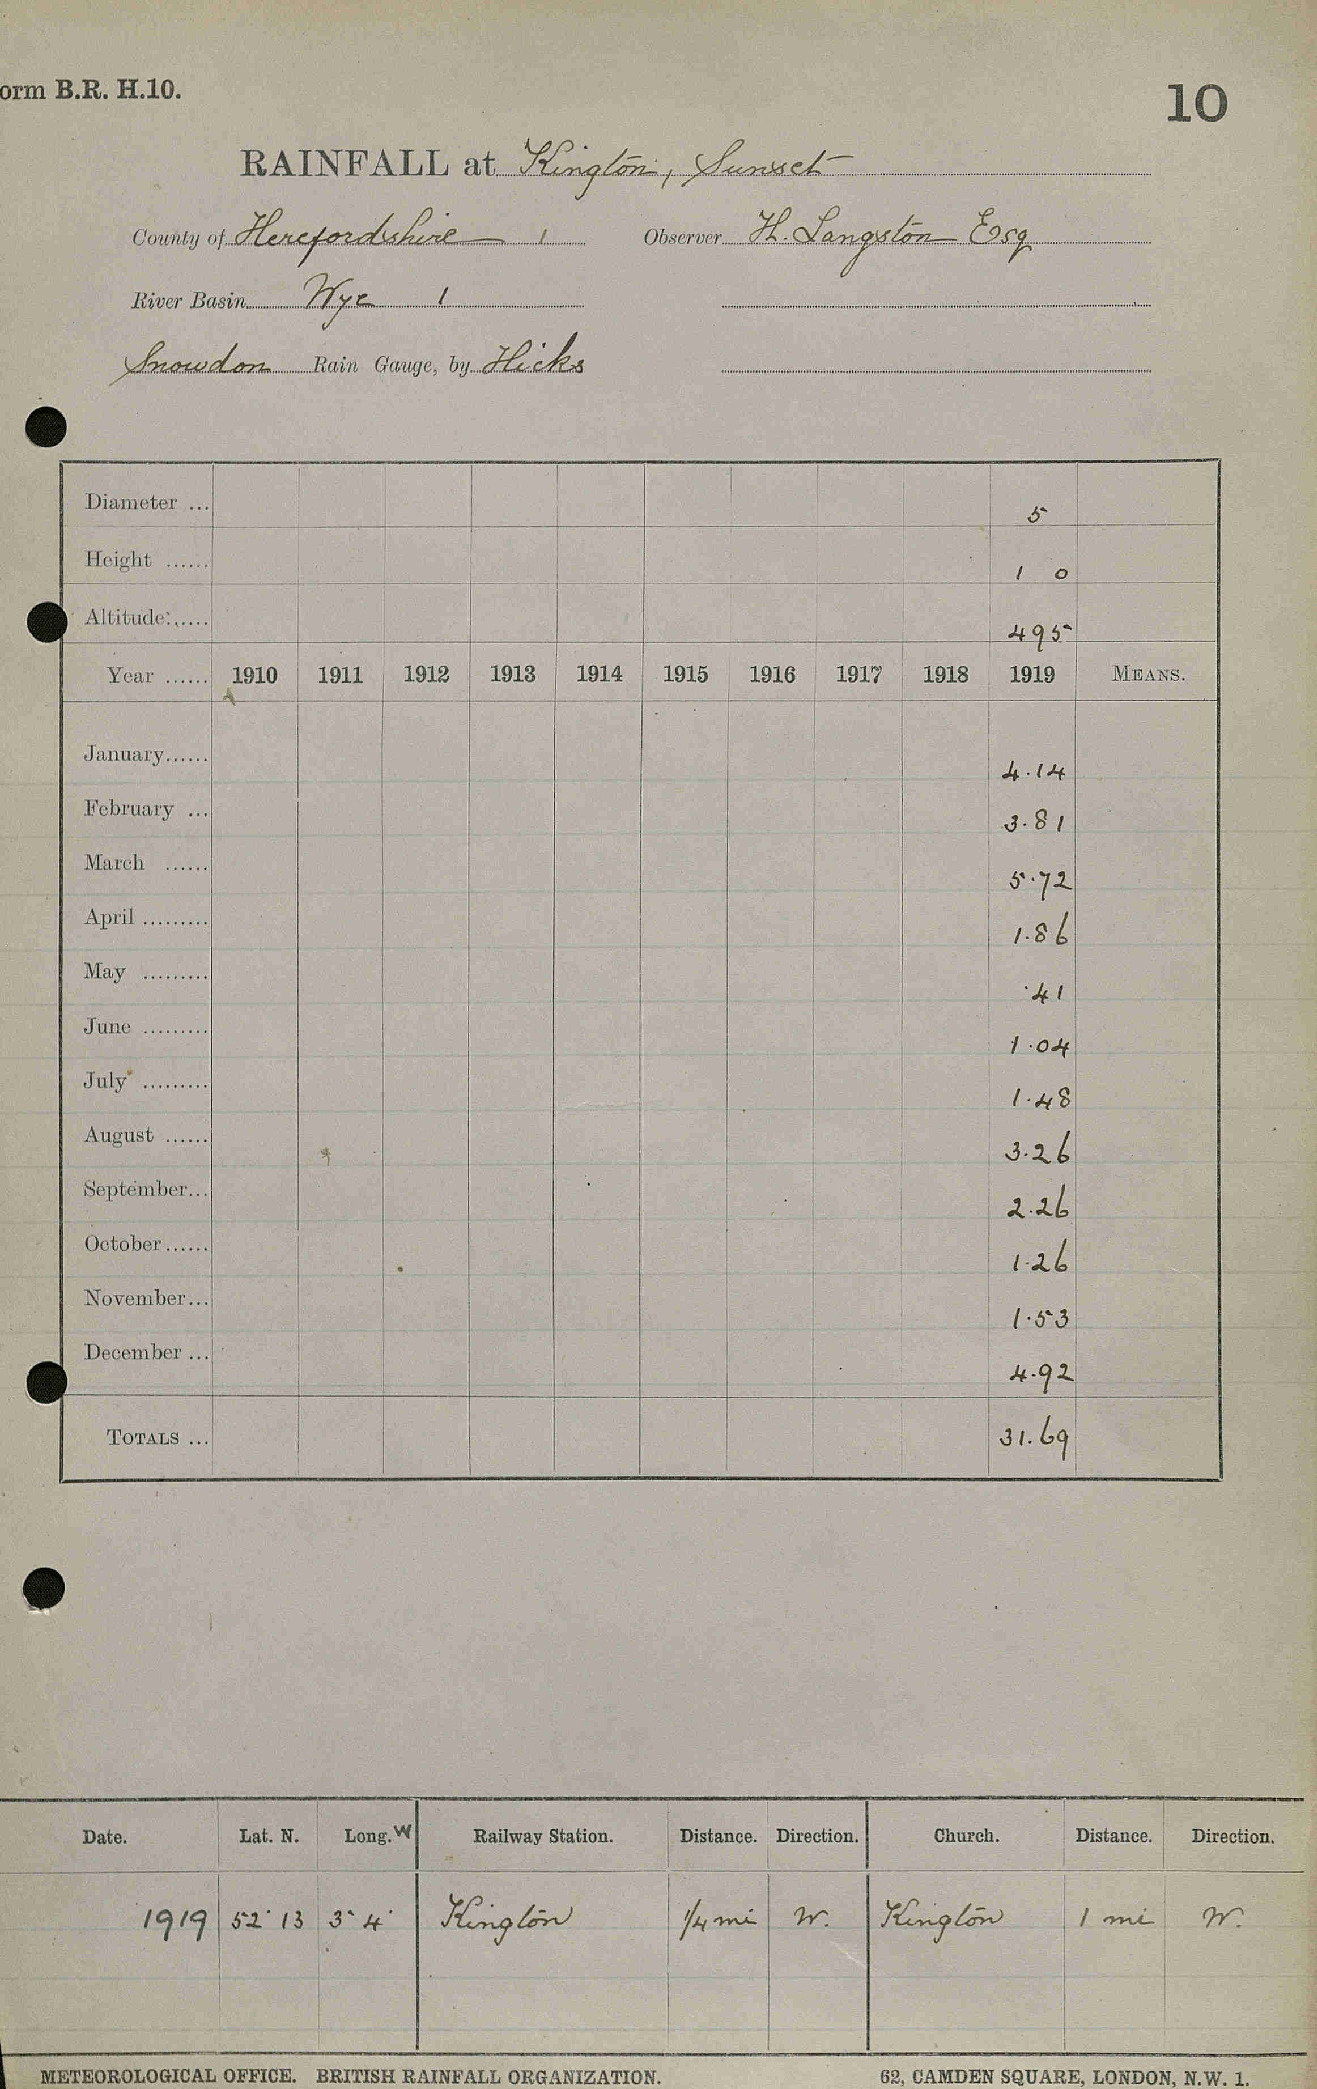 orm B.R. H.10.
10
RAINFALL at Kington, Sunset
County of Herefordshire 1 Observer H. Langston Esq
River Basin Wye 1
Snowdon Rain Gauge, by Hicks
Diameter ... 5
Height ...... 1 0
Altitude ...... 495
Year ...... 1910 1911 1912 1913 1914 1915 1916 1917 1918 1919 MEANS.
January...... 4.14
February ... 3.81
March ...... 5.72
April ......... 1.86
May ......... .41
June ......... 1.04
July ......... 1.48
August ...... 3.26
September... 2.26
October...... 1.26
November... 1.53
December ... 4.92
TOTALS ... 31.69
Date. Lat. N. Long. W Railway Station. Distance. Direction. Church. Distance. Direction.
1919 52° 13 3° 4' Kington 1/4 mi W. Kington 1 mi W.
METEOROLOGICAL OFFICE. BRITISH RAINFALL ORGANIZATION. 62, CAMDEN SQUARE, LONDON, N.W. 1.